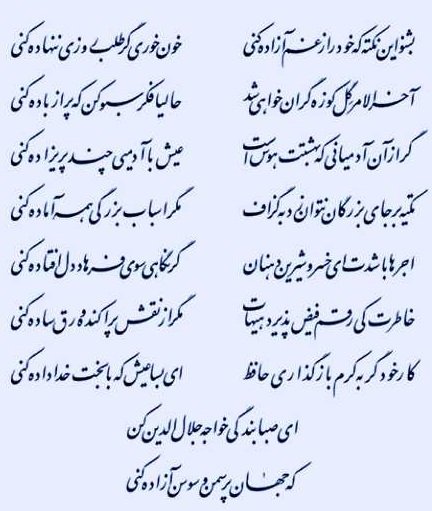 بشنو این نکته که خود را ز غم آزاده کنی خون خوری گر طلب روزی ننهاده کنی
آخر الامر گل کوزه گران خواهی شد حالیا فکر سبو کن که پر از باده کنی
گر از آن آدمیانی که بهشتت هوس است عیش با آدمیی چند پریزاده کنی
تکیه بر جای بزرگان نتوان زد به گزاف مگر اسباب بزرگی همه آماده کنی
اجرها باشدت ای خسرو شیرین دهنان گر نگاهی سوی فرهاد دل افتاده کنی
خاطرت کی رقم فیض پذیرد هیهات مگر از نقش پراکنده ورق ساده کنی
کار خود گر به کرم بازگذاری حافظ ای بسا عیش که با بخت خداداده کنی
ای صبا بندگی خواجه جلال الدین کن
که جهان پر سمن و سوسن آزاده کنی